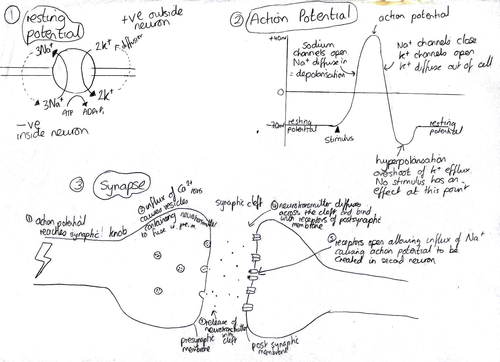 ① resting
potential
+ve outside
neuron
3Na⁺
2K⁺
diffuse
3Na⁺
2K⁺
ATP
ADP+Pi
-ve
inside neuron
② Action Potential
+40mv
0
-70mv
action potential
Sodium
channels open
Na⁺ diffuse in
= depolarisation
Na⁺ channels close
K⁺ channels open
K⁺ diffuse out of cell
resting
potential
Stimulus
resting
potential
hyperpolarisation
overshoot of K⁺ efflux
No stimulus has an
effect at this point
③ Synapse
① action potential
reaches synaptic knob
② influx of Ca²⁺ ions
causes vesicles
containing neurotransmitter
to fuse w. pr. m
synaptic cleft
③ release of
neurotransmitter
in cleft
presynaptic
membrane
④ neurotransmitter diffuses
across the cleft and bind
with receptors of postsynaptic
membrane
⑤ receptors open allowing influx of Na⁺
causing action potential to be
created in second neuron
post synaptic
membrane